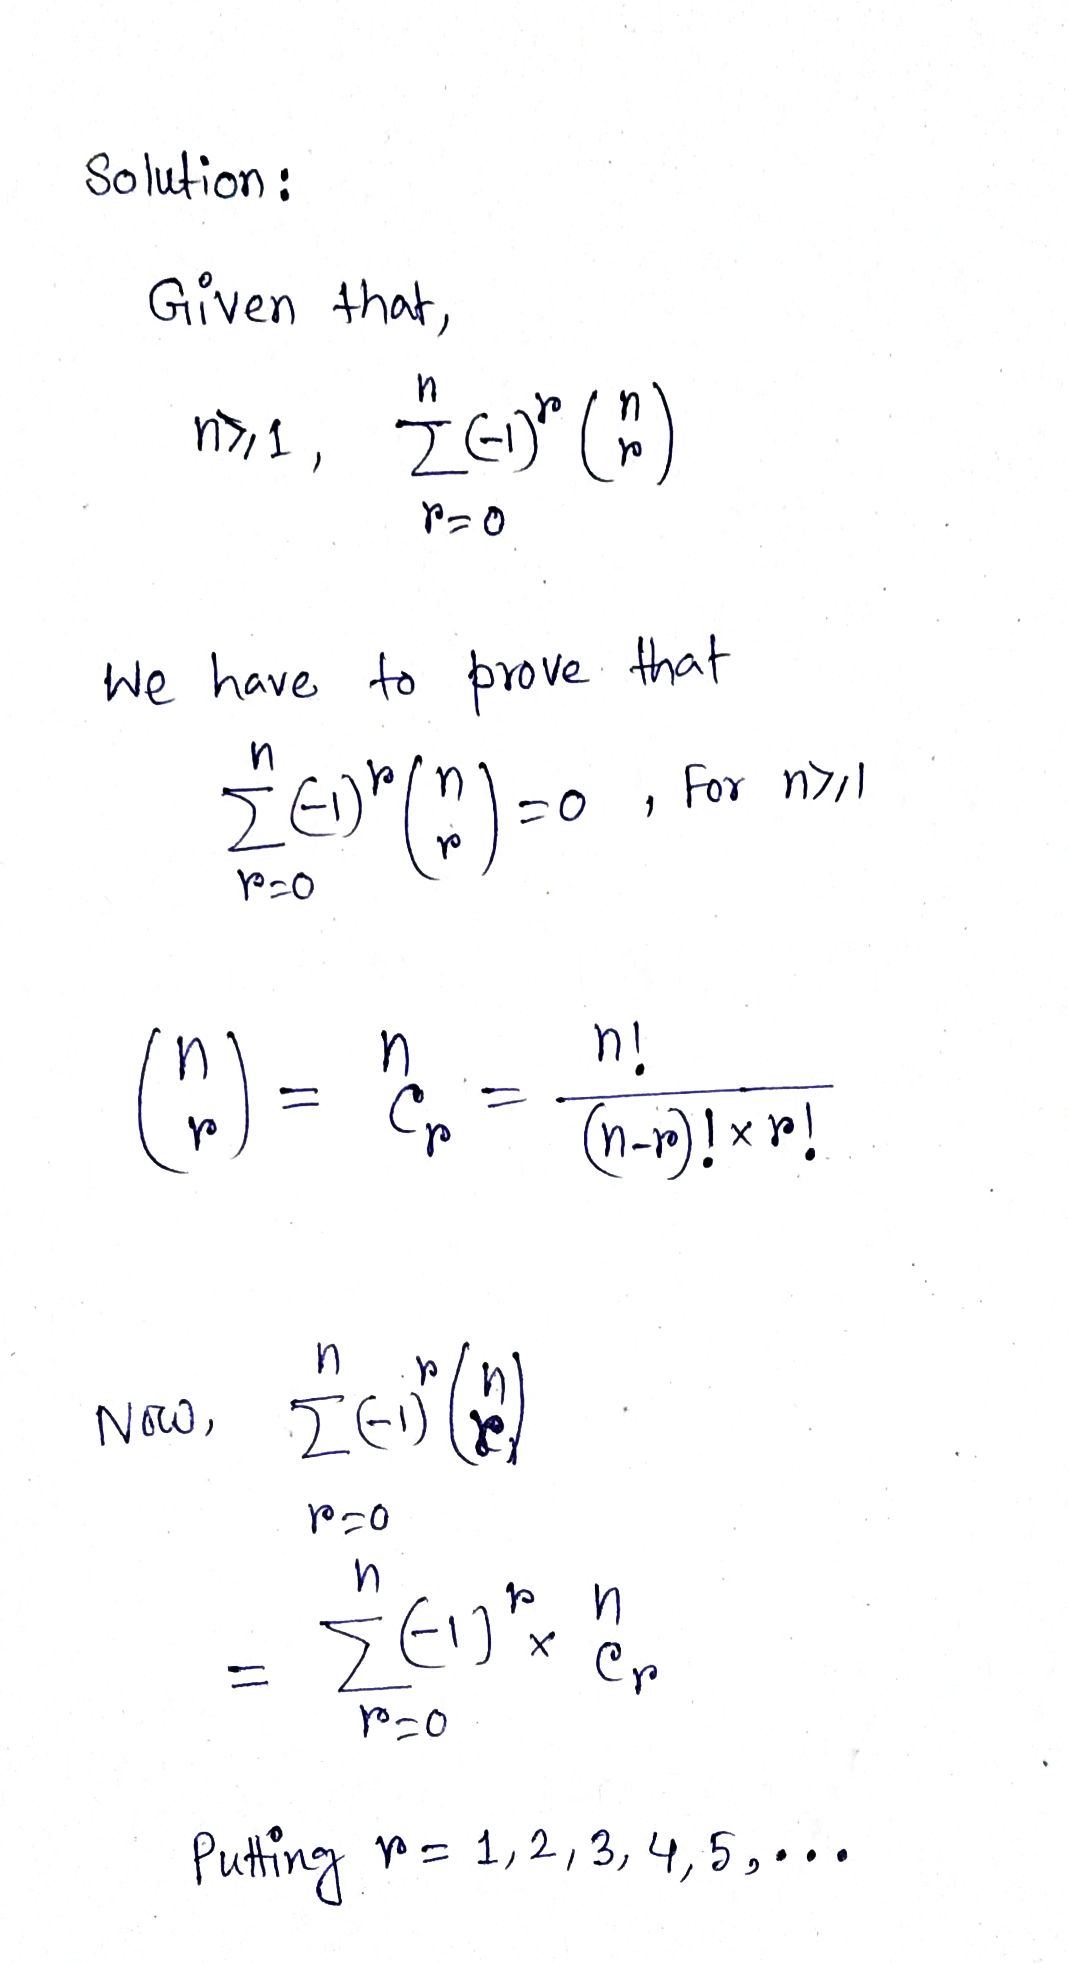 Solution:
Given that,
n≥1, $\sum_{r=0}^{n} (-1)^r \binom{n}{r}$
We have to prove that
$\sum_{r=0}^{n} (-1)^r \binom{n}{r} = 0$, For n≥1
$\binom{n}{r} = {}^{n}C_r = \frac{n!}{(n-r)! \times r!}$
Now, $\sum_{r=0}^{n} (-1)^r \binom{n}{r}$
$= \sum_{r=0}^{n} (-1)^r \times {}^{n}C_r$
Putting r = 1, 2, 3, 4, 5, ...